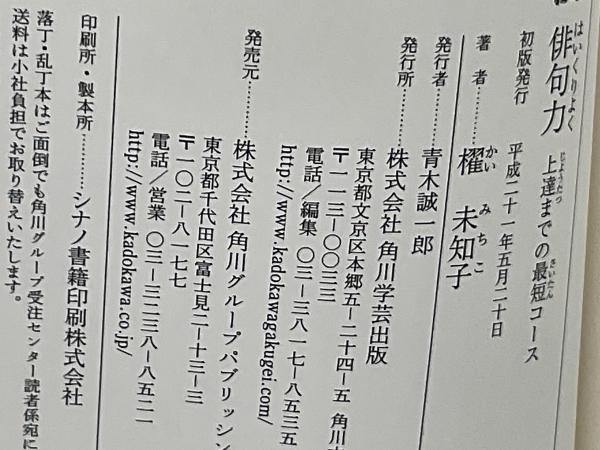 俳句力 上達までの最短コース
はいくりよく じようたつ さいたん
初版発行 平成二十一年五月二十日
著者………櫂 未知子
かい みちこ
発行者………青木誠一郎
発行所………株式会社 角川学芸出版
東京都文京区本郷五-二十四-五 角川
〒一一三-〇〇三三
電話/編集 〇三-三八一七-八五三五
http://www.kadokawagakugei.com/
発売元………株式会社 角川グループパブリッシン
東京都千代田区富士見二-十三-三
〒一〇二-八一七七
電話/営業 〇三-三二三八-八五二一
http://www.kadokawa.co.jp/
印刷所・製本所………シナノ書籍印刷株式会社
落丁・乱丁本はご面倒でも角川グループ受注センター読者係宛に
送料は小社負担でお取り替えいたします。